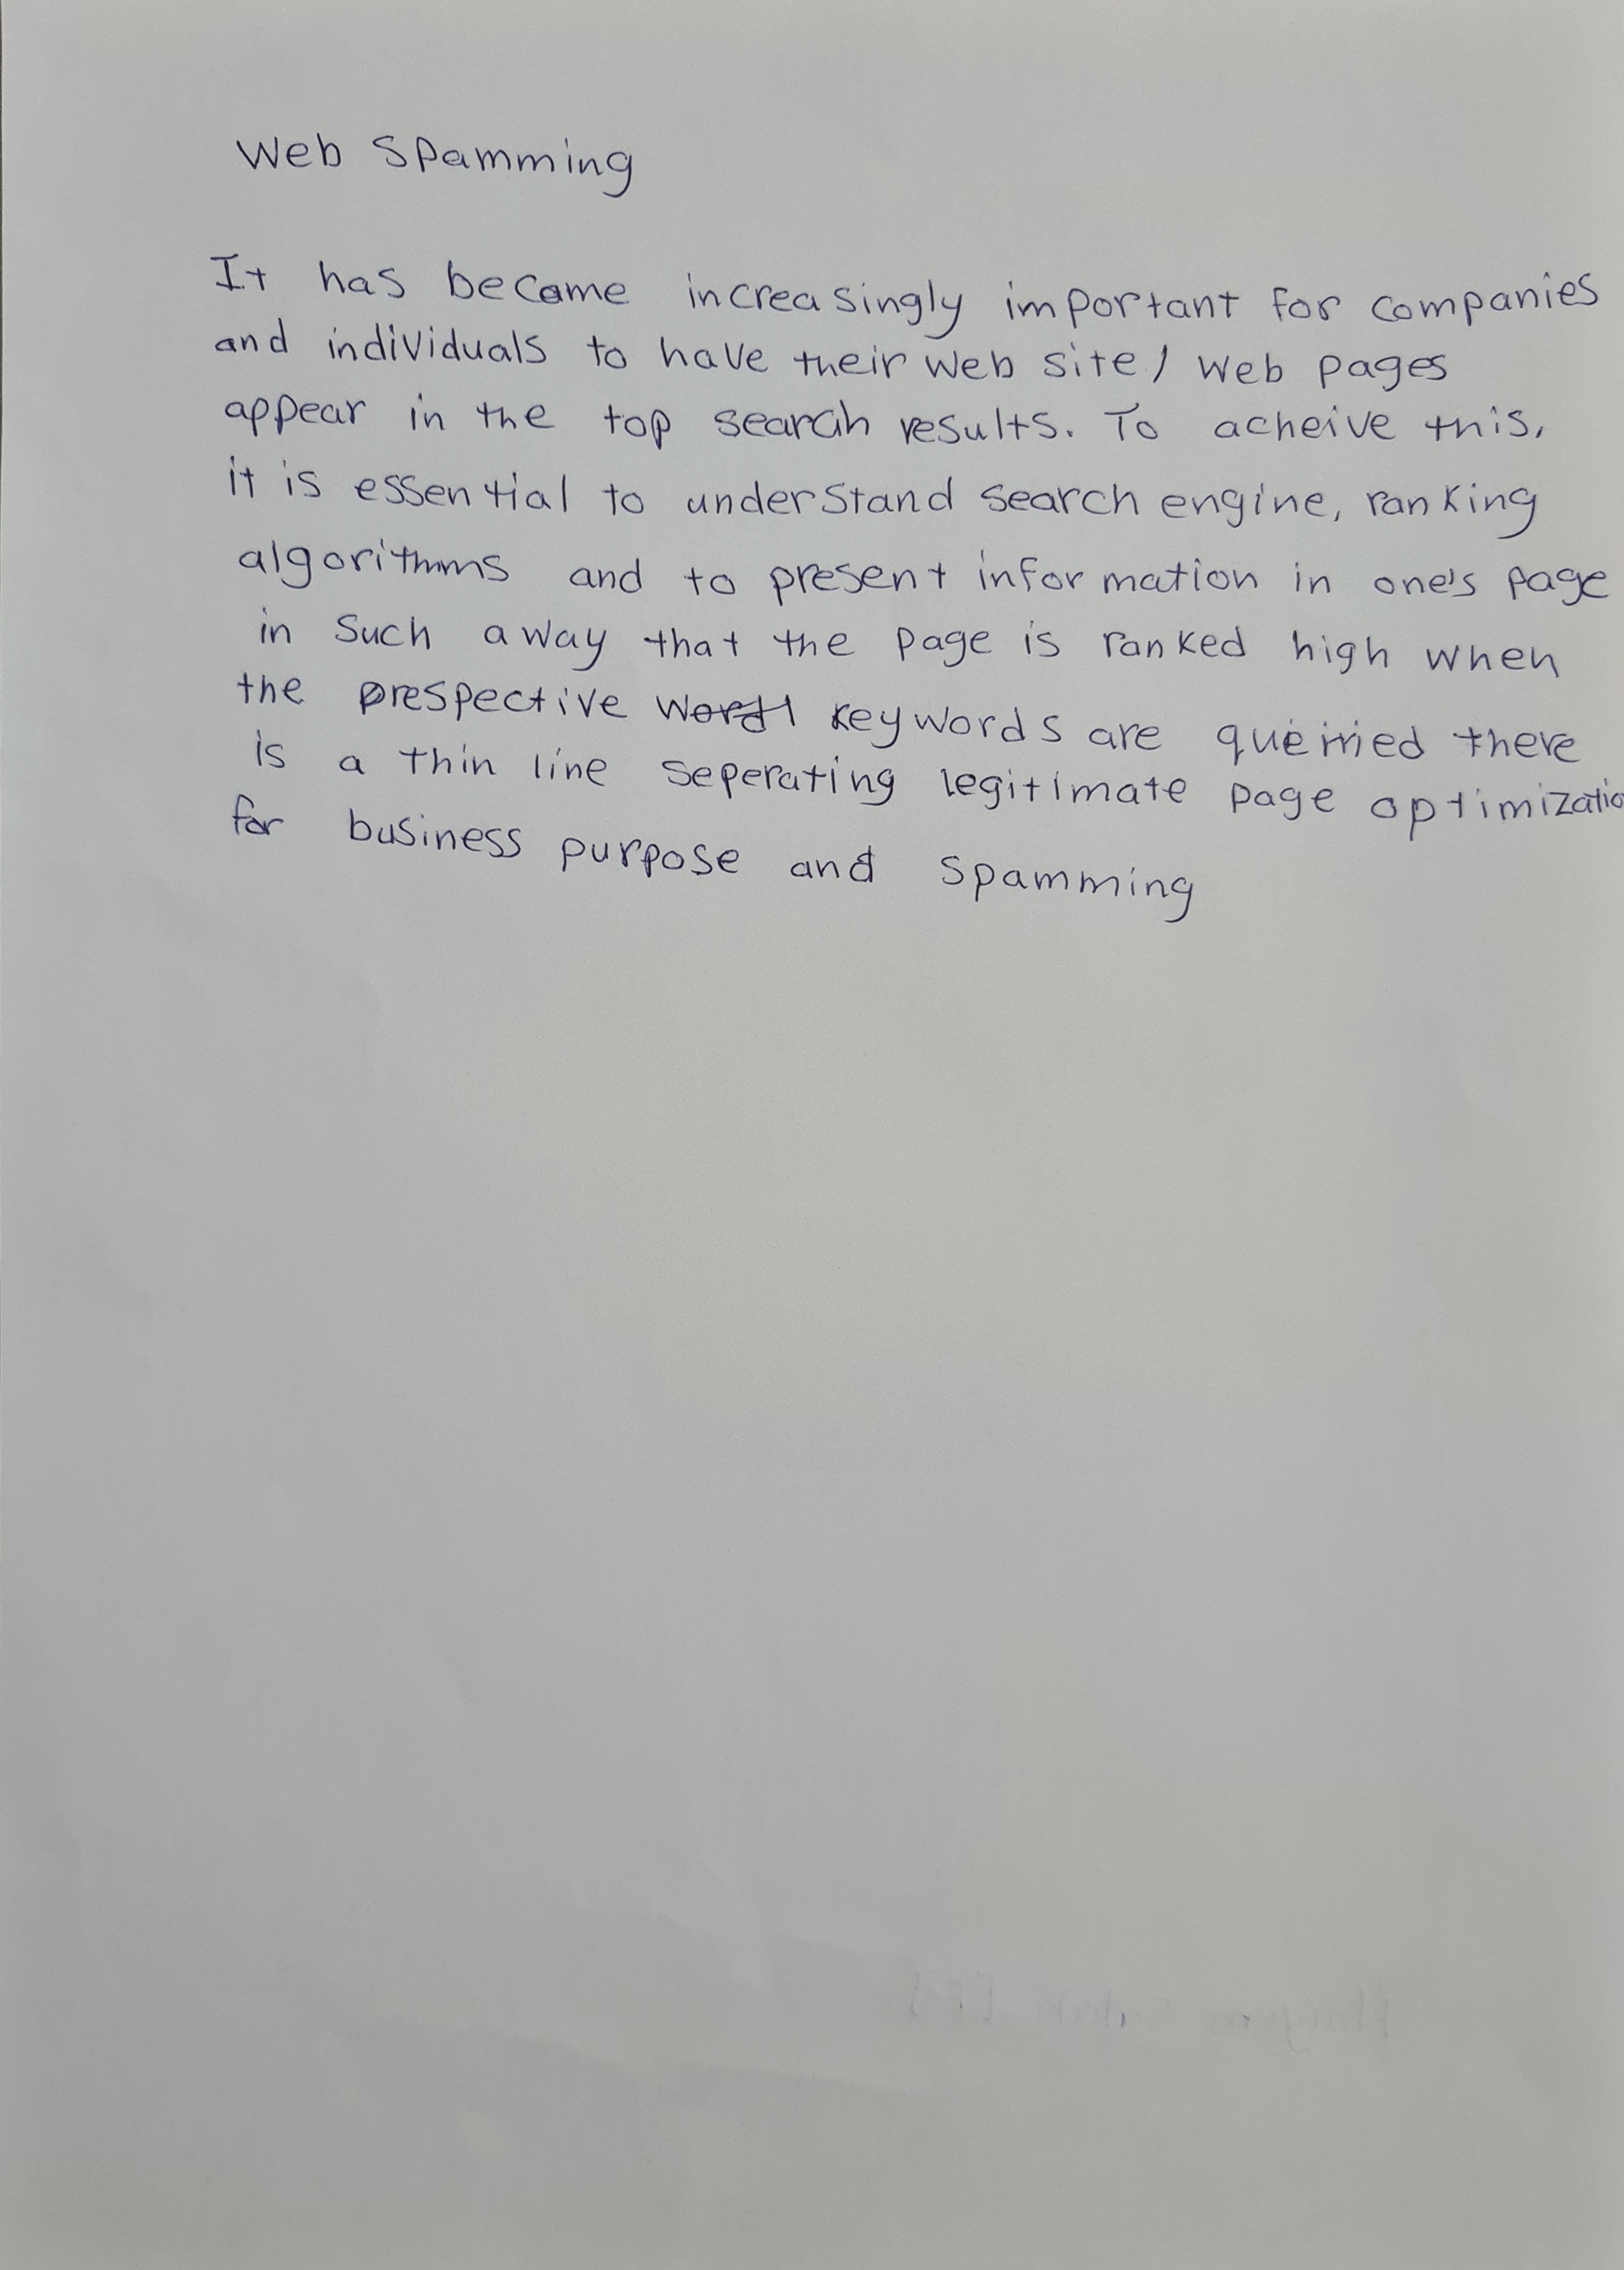 Web Spamming
It has become increasingly important for companies
and individuals to have their web site / web pages
appear in the top search results. To acheive this,
it is essential to understand search engine, ranking
algorithms and to present information in one's page
in such a way that the page is ranked high when
the prespective keywords are there
is a thin line seperating legitimate page optimizatio
for business purpose and spamming